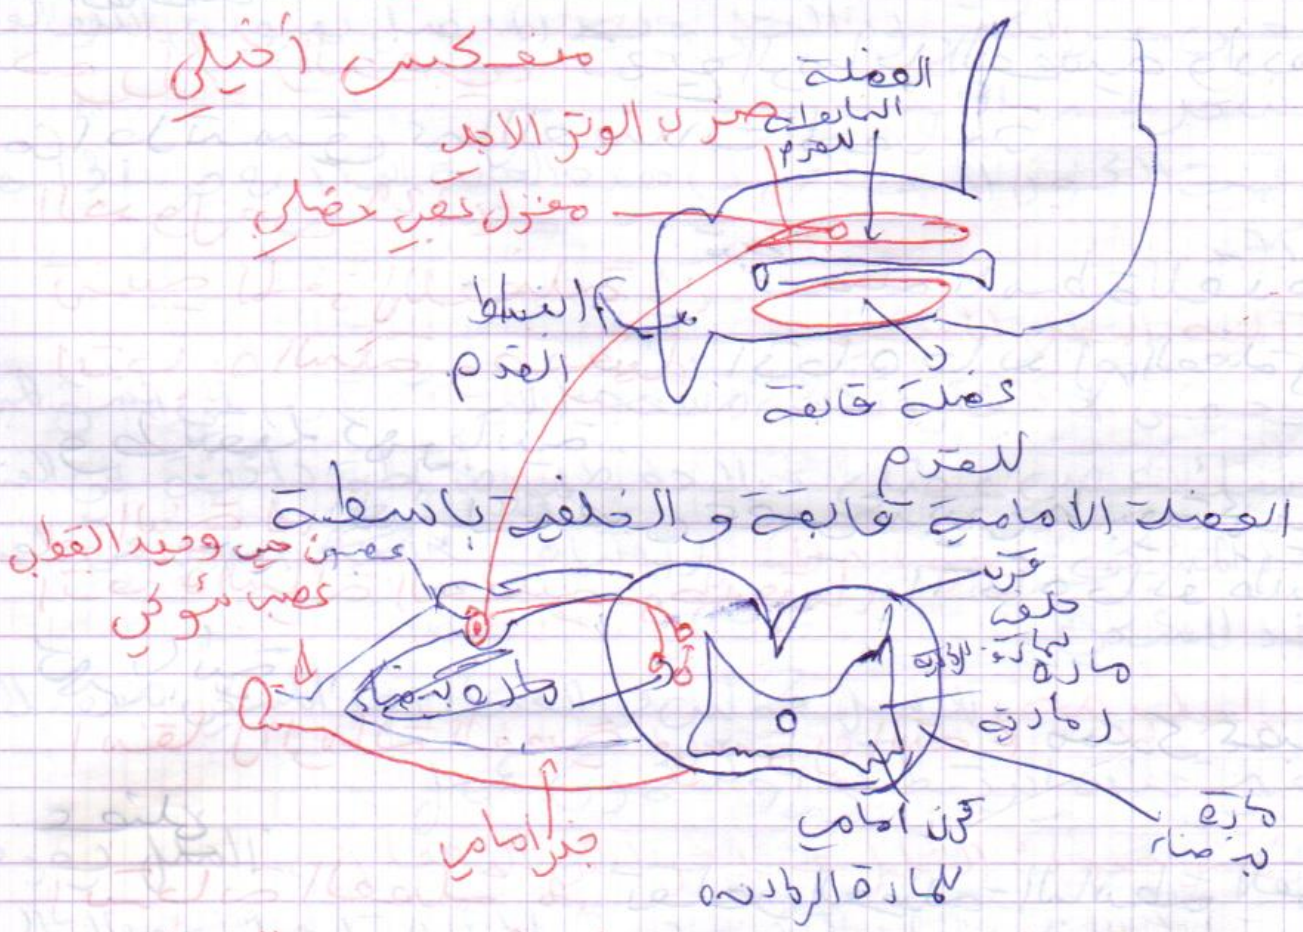 منعكس أخيلي
العضلة
الباسطة
للقدم
ضرب الوتر الأخيلي
مغزل عصبي عضلي
انبساط
القدم
عضلة قابضة
للقدم
العضلة الأمامية قابضة و الخلفية باسطة
عصبون حسي وحيد القطب
عصب شوكي
قرن
خلفي
للمادة الرمادية
مادة
رمادية
مادة بيضاء
جذر أمامي
قرن أمامي
للمادة الرمادية
مادة
بيضاء